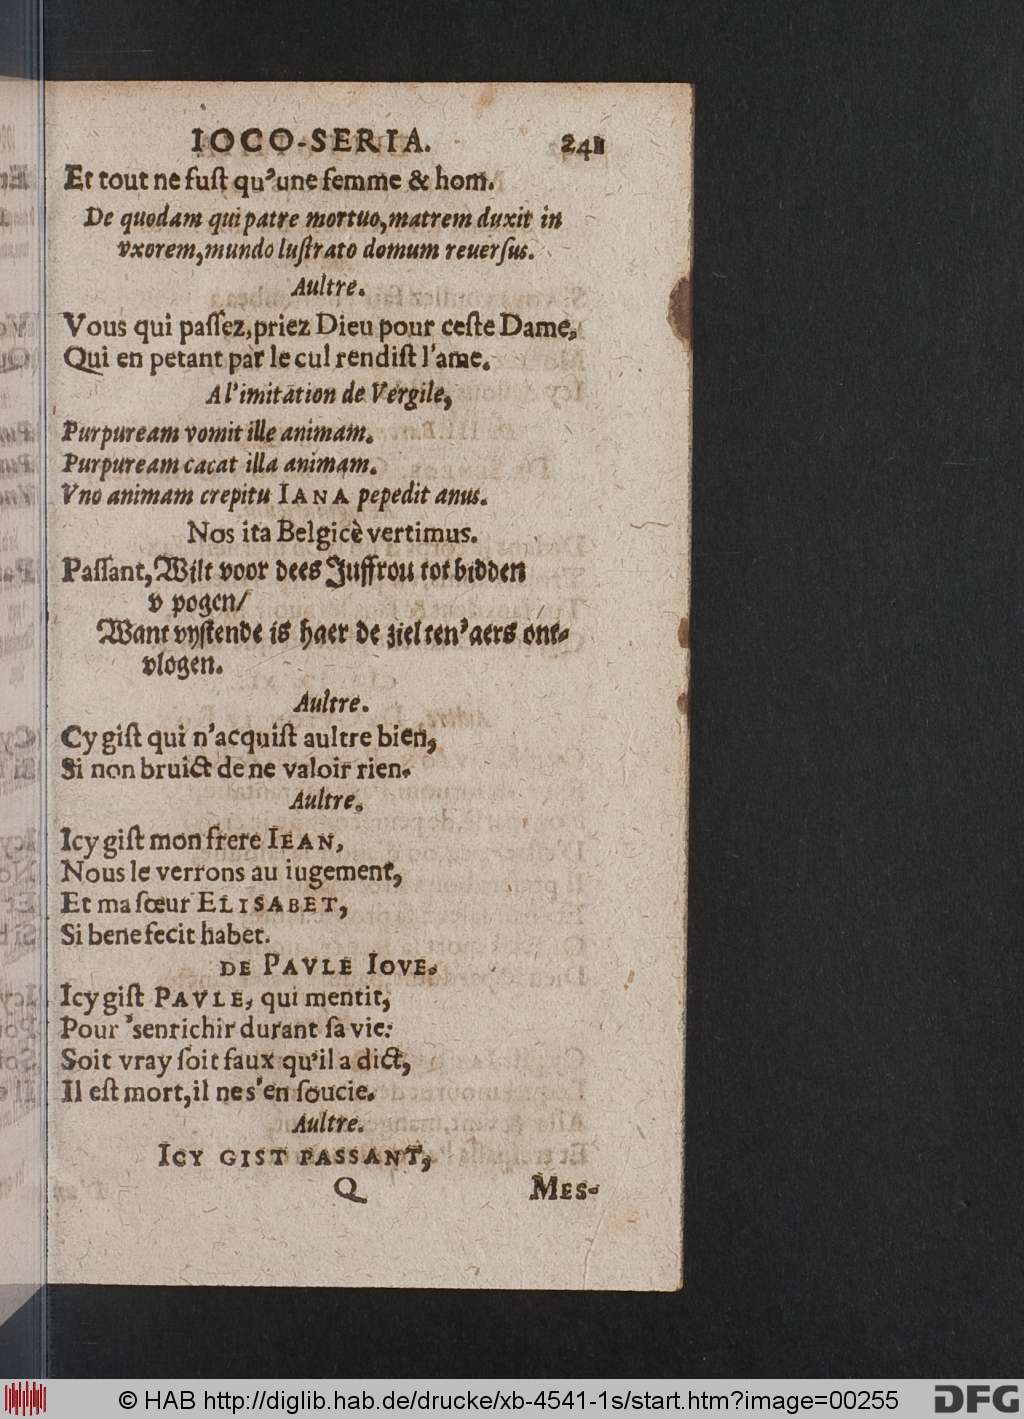 IOCO-SERIA. 241
Et tout ne fuſt qu'une femme & hom.
De quodam qui patre mortuo, matrem duxit in
vxorem, mundo luſtrato domum reuerſus.
Aultre.
Vous qui paſſez, priez Dieu pour ceſte Dame,
Qui en petant par le cul rendiſt l'ame.
A l'imitation de Vergile,
Purpuream vomit ille animam.
Purpuream cacat illa animam.
Vno animam crepitu IANA pepedit anus.
Nos ita Belgicè vertimus.
Paſſant, Wilt voor dees Juffrou tot bidden
v pogen/
Want vyſtende is haer de ziel ten'aers ont-
vlogen.
Aultre.
Cy giſt qui n'acquiſt aultre bien,
Si non bruict de ne valoir rien.
Aultre.
Icy giſt mon frere IEAN,
Nous le verrons au iugement,
Et ma ſœur ELISABET,
Si bene fecit habet.
DE PAVLE IOVE.
Icy giſt PAVLE, qui mentit,
Pour 'senrichir durant ſa vie:
Soit vray ſoit faux qu'il a dict,
Il eſt mort, il ne s'en ſoucie.
Aultre.
ICY GIST PASSANT,
Q MES-
© HAB http://diglib.hab.de/drucke/xb-4541-1s/start.htm?image=00255
DFG